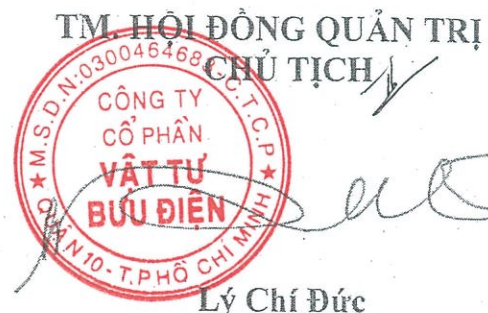 TM. HỘI ĐỒNG QUẢN TRỊ
CHỦ TỊCH
M.S.D.N:0300464689-C.T.C.P
CÔNG TY
CỔ PHẦN
VẬT TƯ
BƯU ĐIỆN
QUẬN 10 - T.P HỒ CHÍ MINH
Lý Chí Đức